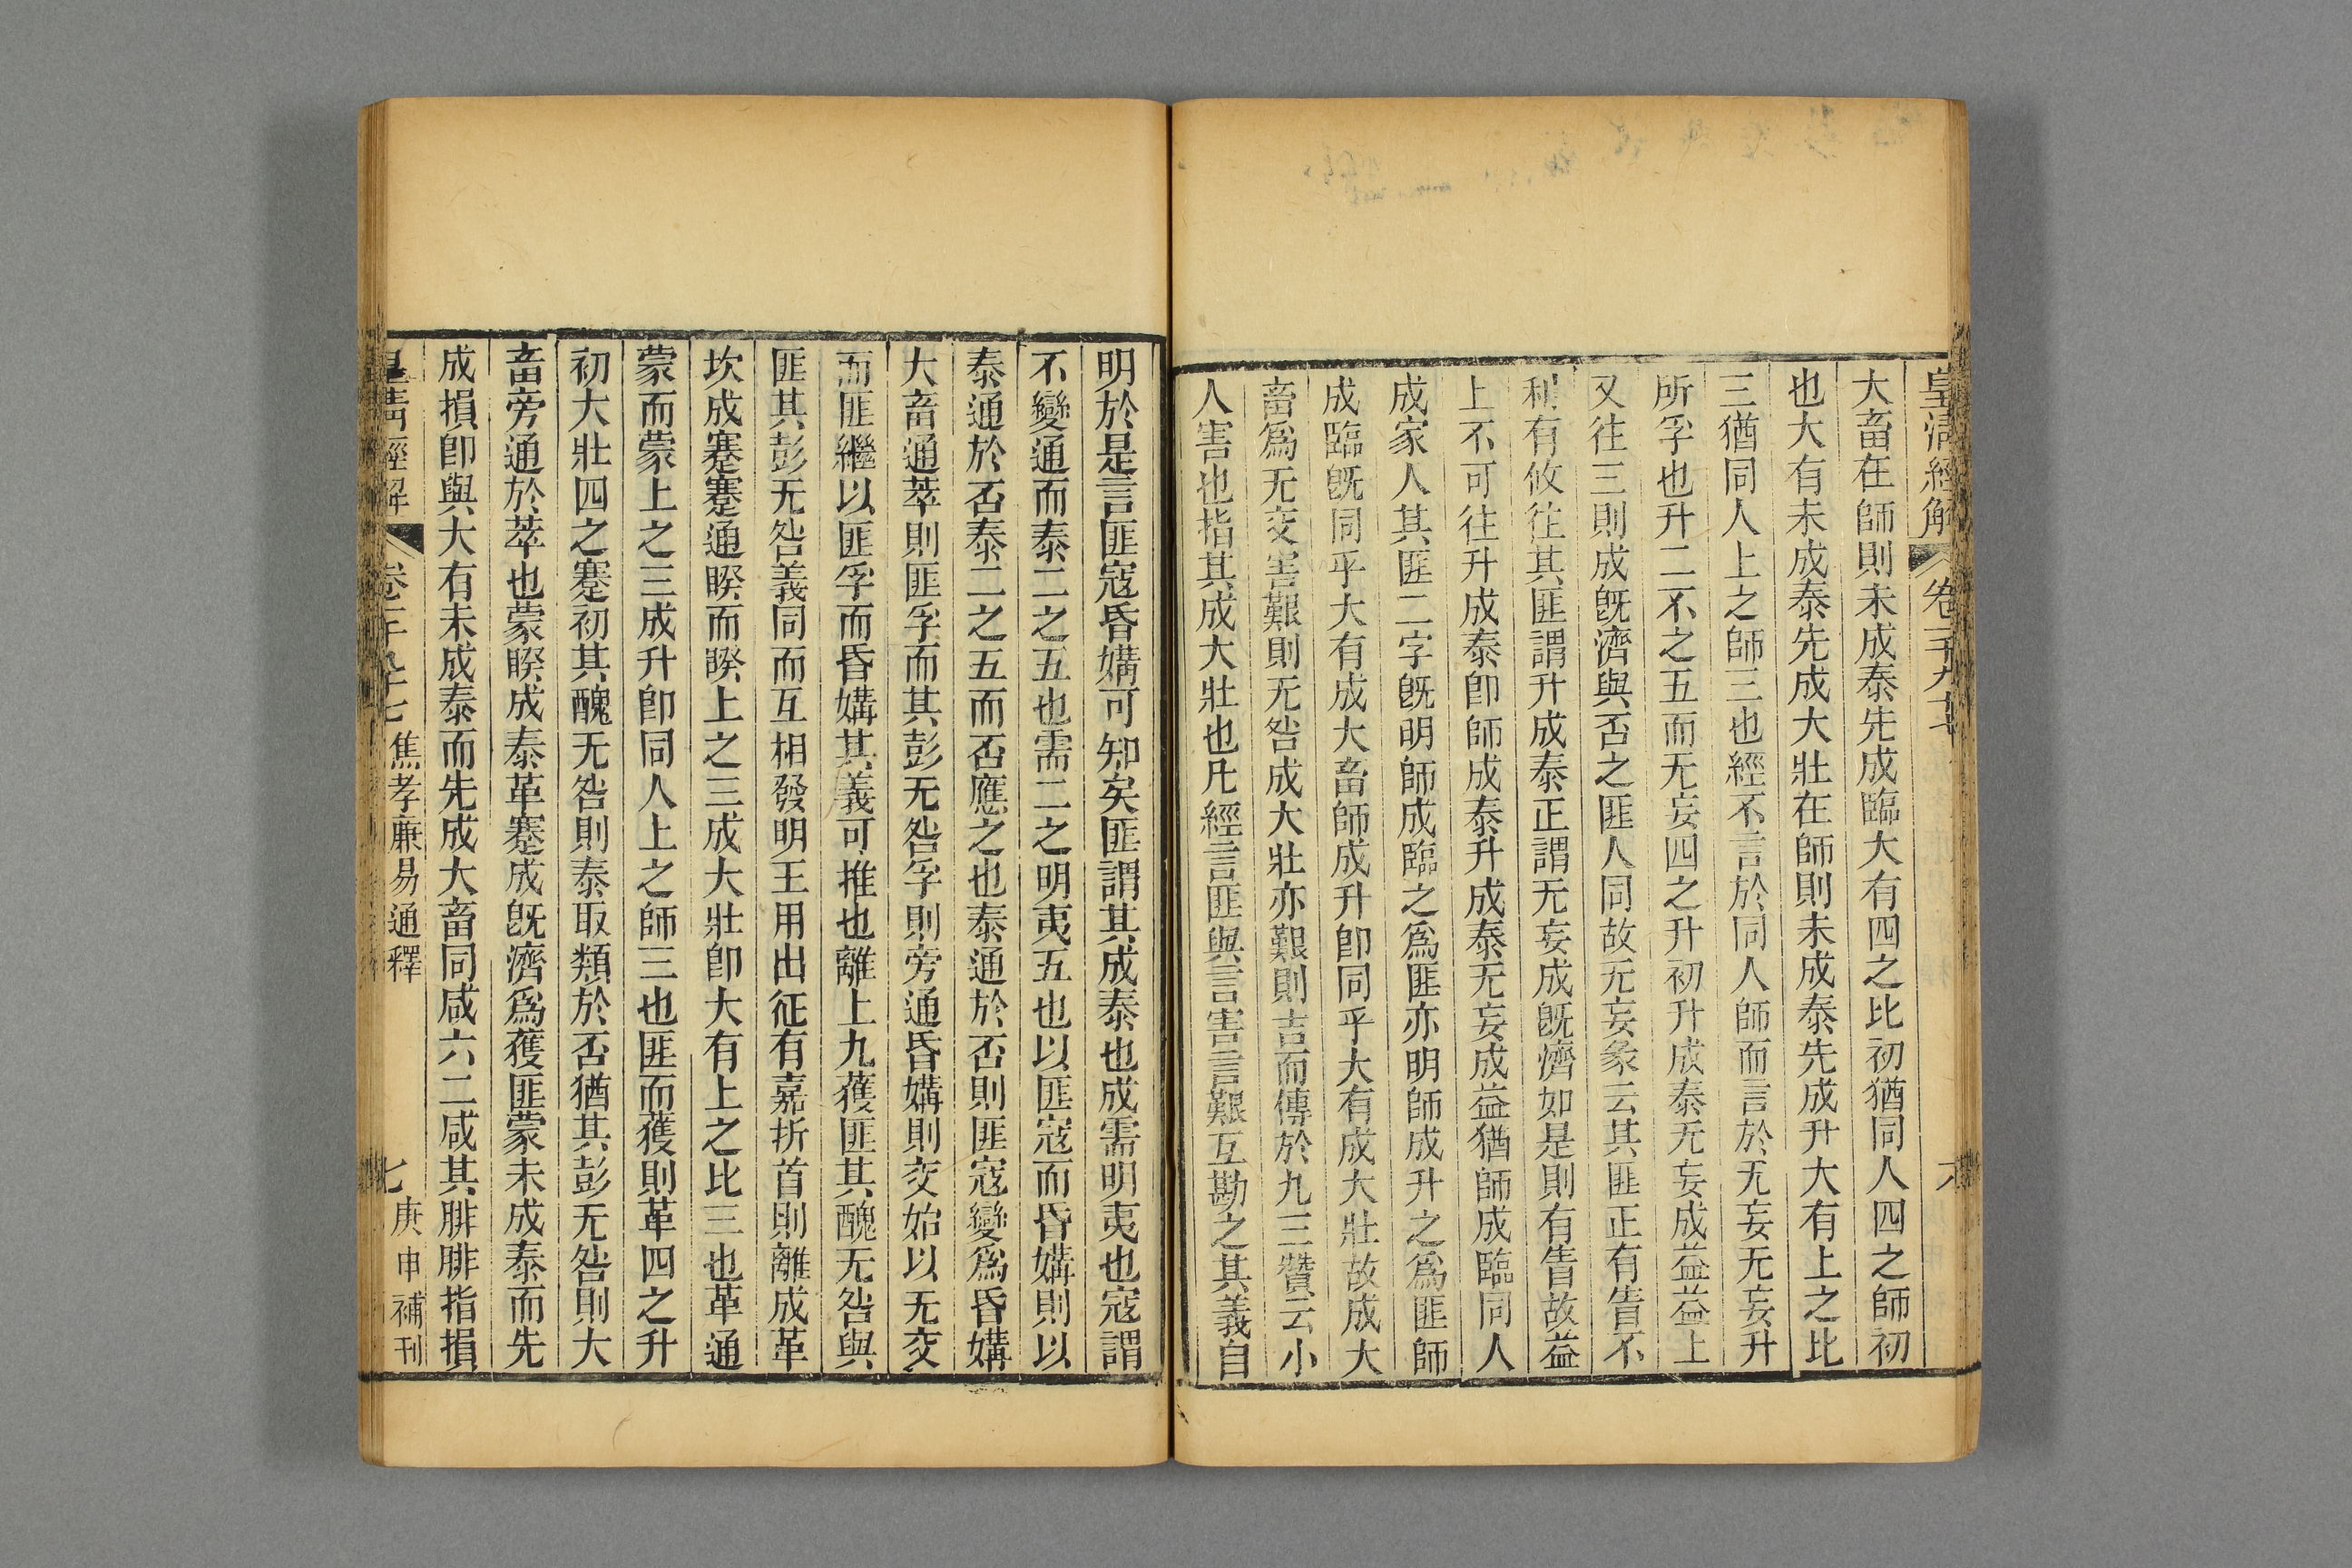 皇清經解 卷一千九十七 六
大畜在師則未成泰先成臨大有四之比初猶同人四之師初
也大有未成泰先成大壯在師則未成泰先成升大有上之比
三猶同人上之師三也經不言於同人師而言於无妄无妄升
所孚也升二不之五而无妄四之升初升成泰无妄成益益上
又往三則成旣濟與否之匪人同故无妄彖云其匪正有眚不
利有攸往其匪謂升成泰正謂无妄成旣濟如是則有眚故益
上不可往升成泰卽師成泰升成泰无妄成益猶師成臨同人
成家人其匪二字旣明師成臨之爲匪亦明師成升之爲匪師
成臨旣同乎大有成大畜師成升卽同乎大有成大壯故成大
畜爲无交害艱則无咎成大壯亦艱則吉而傳於九三贊云小
人害也指其成大壯也凡經言匪與言害言艱互勘之其義自
明於是言匪寇昏媾可知矣匪謂其成泰也成需明夷也寇謂
不變通而泰二之五也需二之明夷五也以匪寇而昏媾則以
泰通於否泰二之五而否應之也泰通於否則匪寇變爲昏媾
大畜通萃則匪孚而其彭无咎孚則旁通昏媾則交始以无交
而匪繼以匪孚而昏媾其義可推也離上九獲匪其醜无咎與
匪其彭无咎義同而互相發明王用出征有嘉折首則離成革
坎成蹇蹇通睽而睽上之三成大壯卽大有上之比三也革通
蒙而蒙上之三成升卽同人上之師三也匪而獲則革四之升
初大壯四之蹇初其醜无咎則泰取類於否猶其彭无咎則大
畜旁通於萃也蒙睽成泰革蹇成旣濟爲獲匪蒙未成泰而先
成損卽與大有未成泰而先成大畜同咸六二咸其腓腓指損
皇清經解 卷一千九十七 焦孝廉易通釋 七 庚申補刊